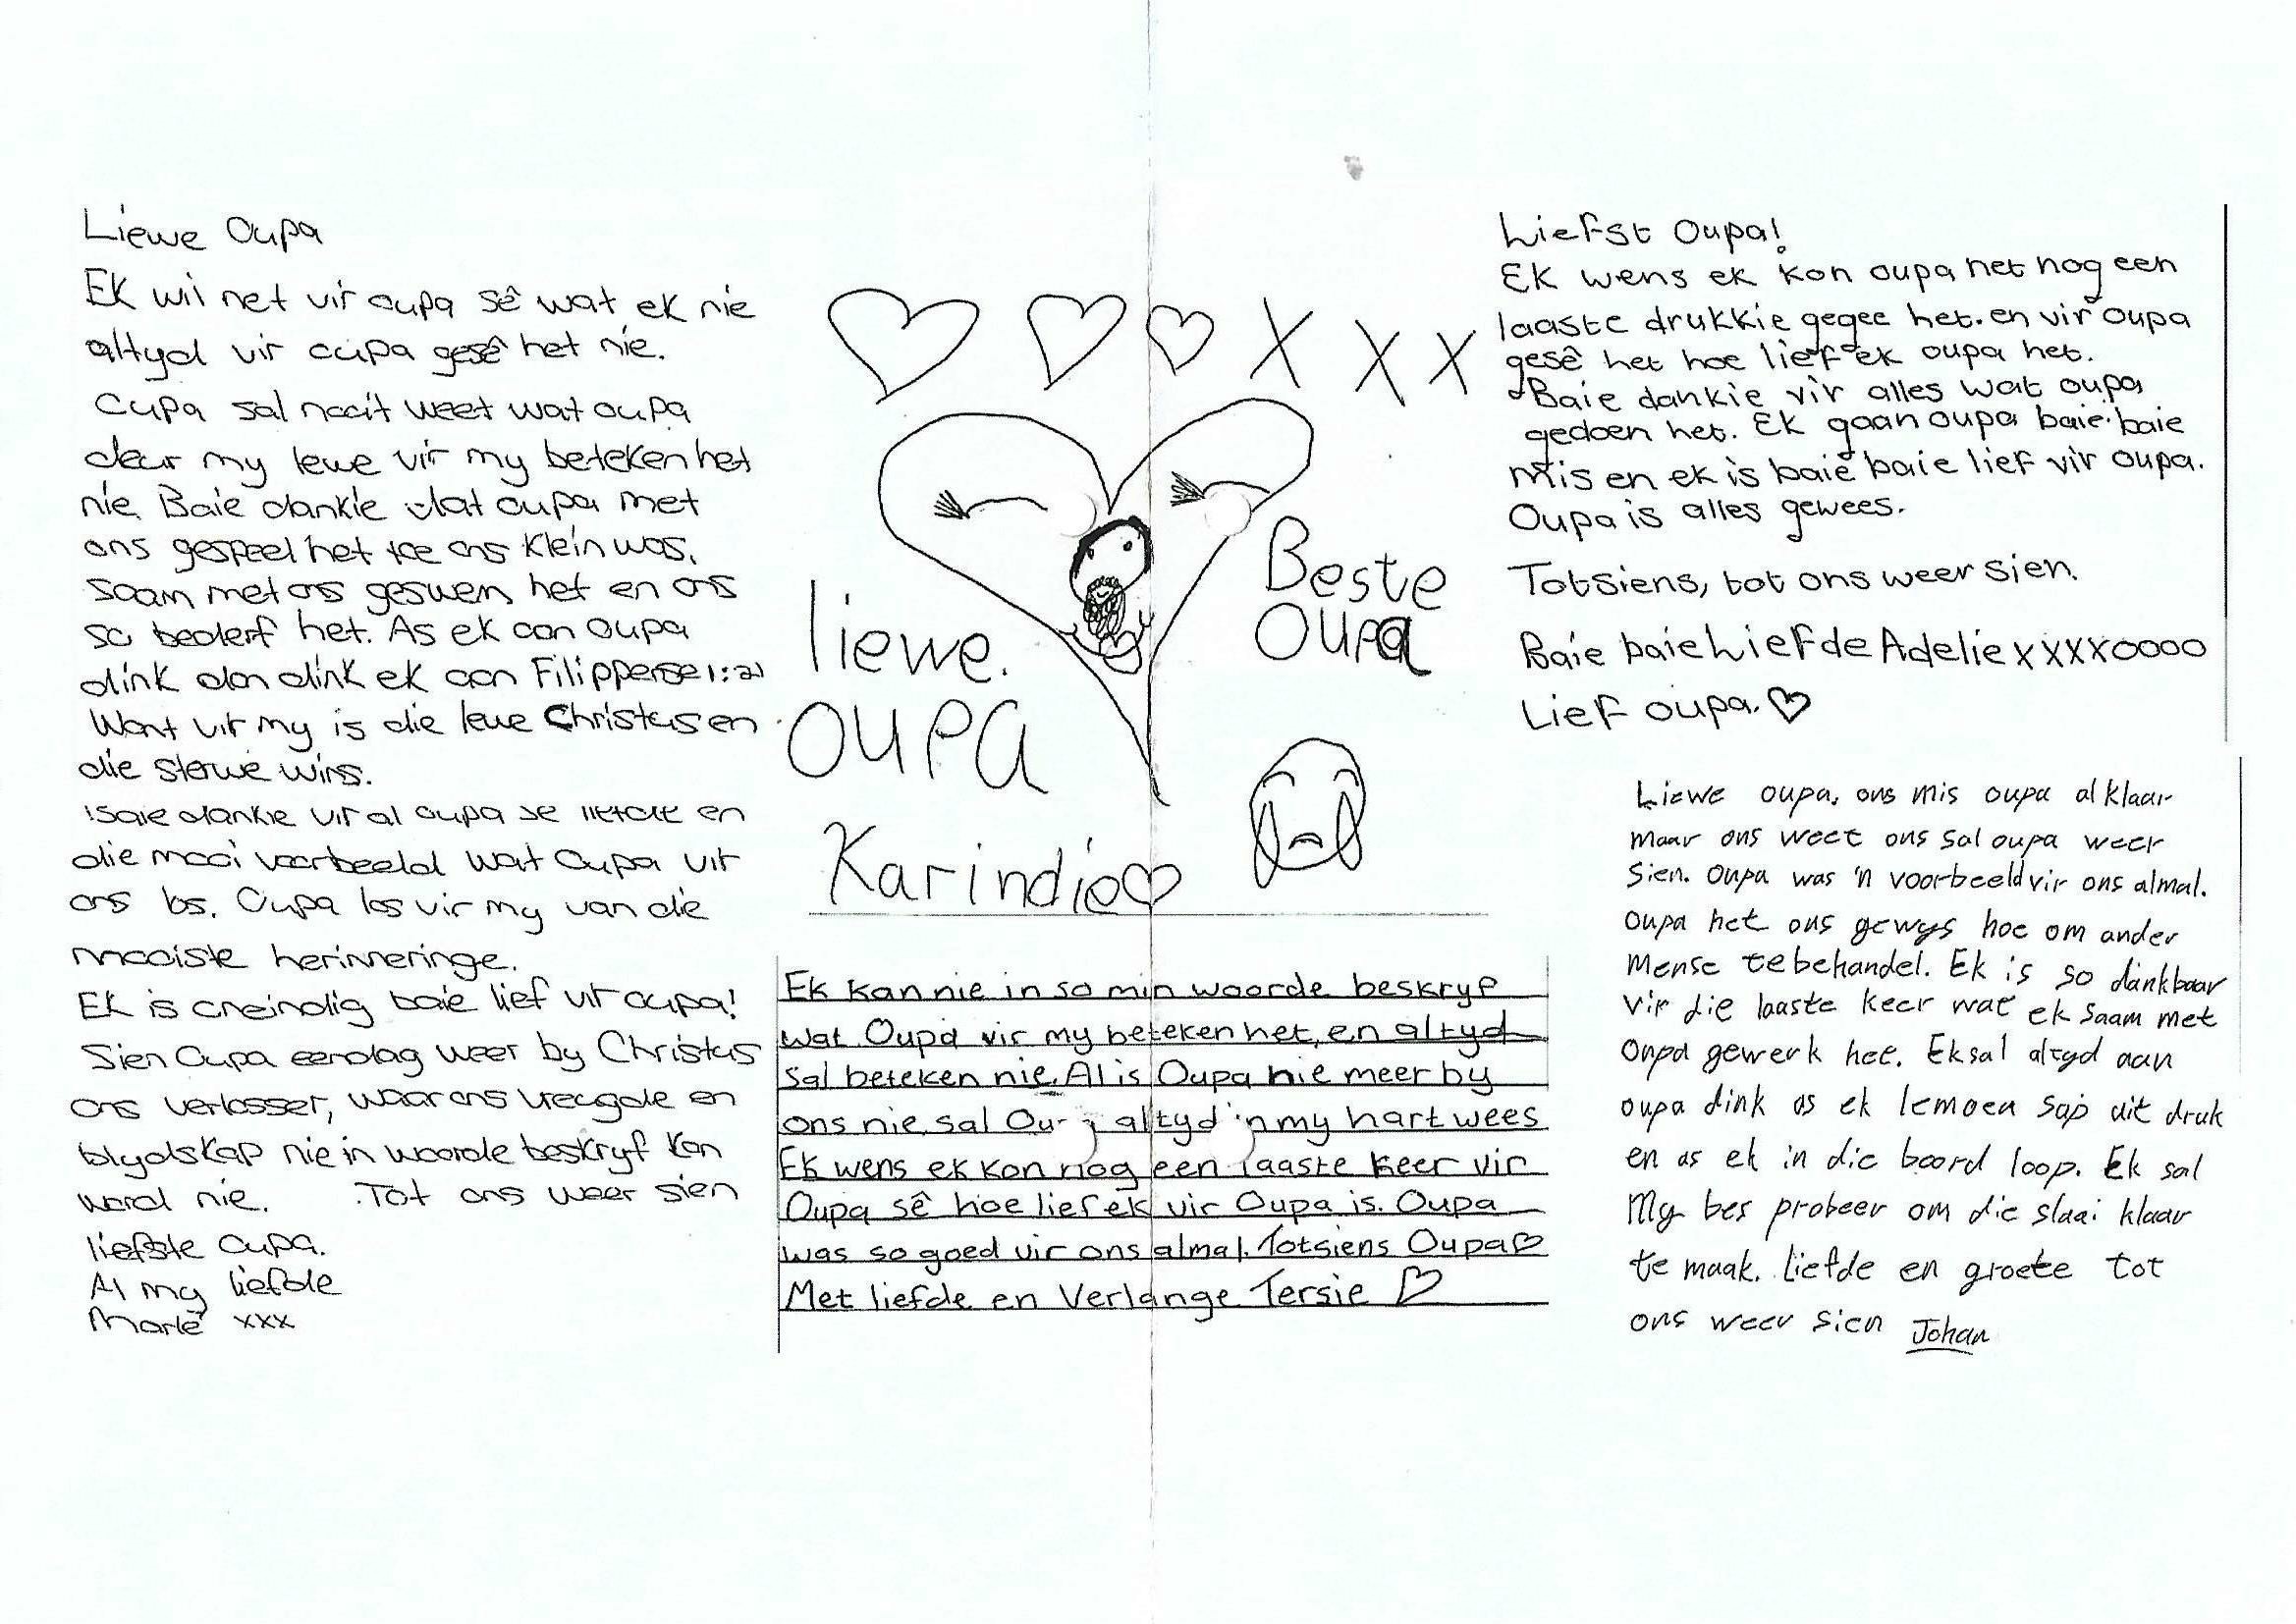 Liewe Oupa
Ek wil net vir oupa sê wat ek nie
altyd vir oupa gesê het nie.
Oupa sal nooit weet wat oupa
deur my lewe vir my beteken het
nie. Baie dankie dat oupa met
ons gespeel het toe ons klein was,
saam met ons geswem het en ons
so bederf het. As ek aan Oupa
dink dan dink ek aan Filippense 1:21
Want vir my is die lewe Christus en
die sterwe wins.
Baie dankie vir al oupa se liefde en
die mooi voorbeeld wat Oupa vir
ons los. Oupa los vir my van die
mooiste herinneringe.
Ek is oneindig baie lief vir oupa!
Sien Oupa eendag weer by Christus
ons verlosser, waar ons vreugde en
blydskap nie in woorde beskryf kan
word nie. Tot ons weer sien
liefste Oupa.
Al my liefde
Marlé xxx
X X X
liewe.
OUPA
Beste
Oupa
Karindie
Ek kan nie in so min woorde beskryf
wat Oupa vir my beteken het, en altyd
sal beteken nie. Al is Oupa nie meer by
ons nie, sal altyd in my hart wees
Ek wens ek kon nog een laaste keer vir
Oupa sê hoe lief ek vir Oupa is. Oupa
was so goed vir ons almal. Totsiens Oupa♡
Met liefde en Verlange Tersie ♡
Liefst Oupa!
Ek wens ek kon oupa net nog een
laaste drukkie gegee het. en vir oupa
gesê het hoe lief ek oupa het.
Baie dankie vir alles wat oupa
gedoen het. Ek gaan oupa baie baie
mis en ek is baie baie lief vir oupa.
Oupa is alles gewees.
Totsiens, tot ons weer sien.
Baie baie Liefde Adelie xxxxoooo
Lief oupa. ♡
Liewe oupa, ons mis oupa al klaar
maar ons weet ons sal oupa weer
sien. Oupa was 'n voorbeeld vir ons almal.
Oupa het ons gewys hoe om ander
mense te behandel. Ek is so dankbaar
vir die laaste keer wat ek saam met
Oupa gewerk het. Ek sal altyd aan
oupa dink as ek lemoen sap uit druk
en as ek in die boord loop. Ek sal
My bes probeer om die slaai klaar
te maak. liefde en groete tot
ons weer sien Johan